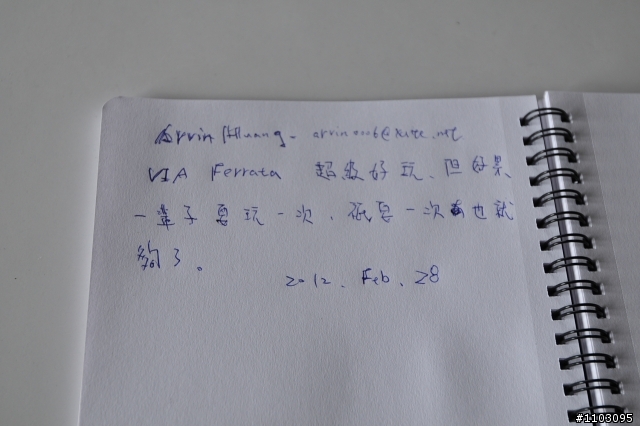 Arvin Huang.
VIA Ferrata 超級好玩、但如果
一輩子要玩一次、祇要一次也就
夠了。
2012. Feb. 28
#1103095